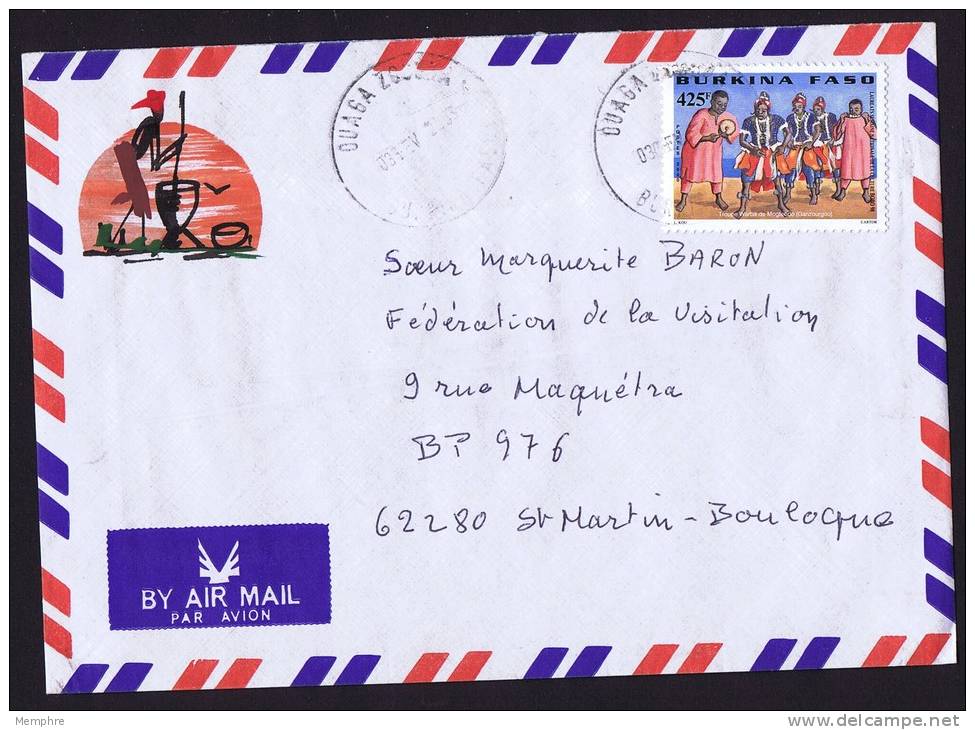 OUAGA
OUAGA
BURKINA FASO
425F
POSTES
Troupe Warba de Mogtedo (Ganzourgou)
L. KOU CARTOR
Sœur Marguerite BARON
Fédération de la Visitation
9 rue Maquétra
BP 976
62280 St Martin - Boulogne
BY AIR MAIL
PAR AVION
Memphre
delcampe.net